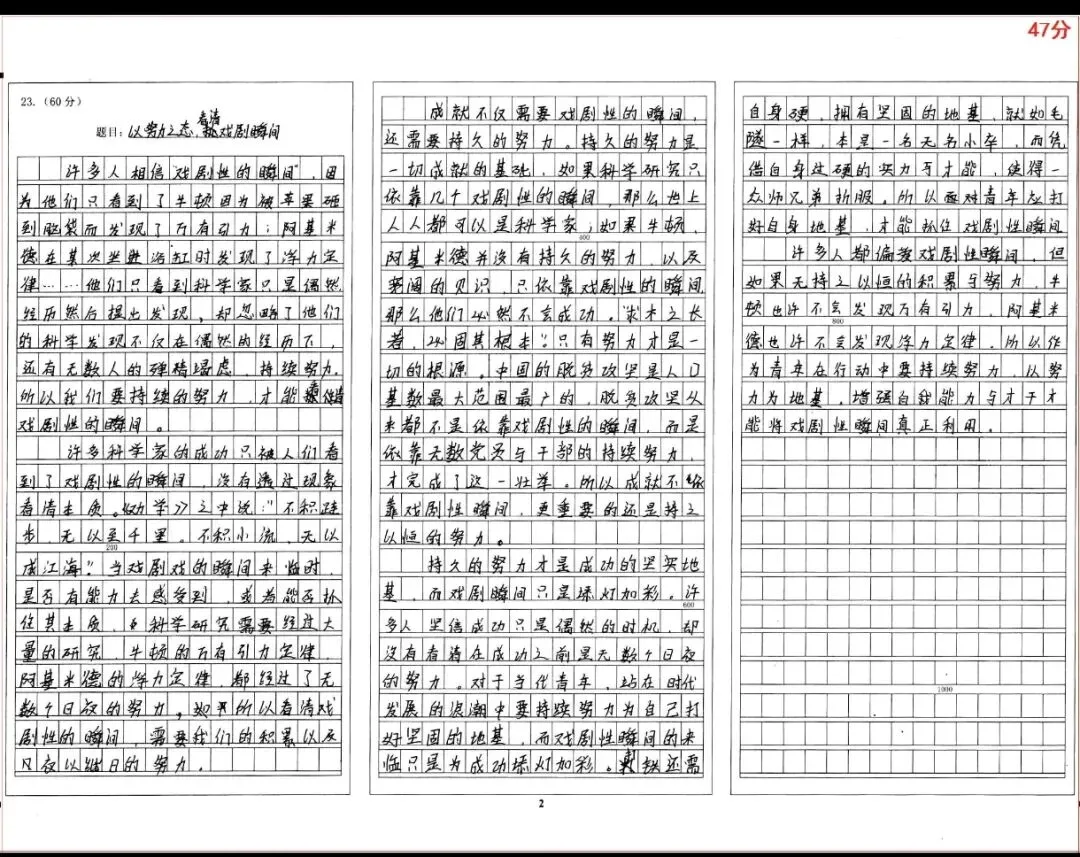 47分
23.（60分）
看清
题目：以努力之态，戏剧瞬间
许多人相信"戏剧性的瞬间"，因
为他们只看到了牛顿因为被苹果砸
到脑袋而发现了万有引力；阿基米
德在某次坐进浴缸时发现了浮力定
律……他们只看到科学家只是偶然
经历然后提出发现，却忽略了他们
的科学发现不仅在偶然的经历下，
还有无数人的殚精竭虑，持续努力。
所以我们要持续的努力，才能看清
戏剧性的瞬间。
许多科学家的成功只被人们看
到了戏剧性的瞬间，没有透过现象
看清本质。《劝学》之中说："不积跬
步，无以至千里。不积小流，无以
200
成江海。"当戏剧戏的瞬间来临时，
是否有能力去感受到，或者能否抓
住其本质，科学研究需要经过大
量的研究，牛顿的万有引力定律，
阿基米德的浮力定律，都经过了无
数个日夜的努力。所以看清戏
剧性的瞬间，需要我们的积累以及
夜以继日的努力。
成就不仅需要戏剧性的瞬间，
还需要持久的努力。持久的努力是
一切成就的基础，如果科学研究只
依靠几个戏剧性的瞬间，那么世上
人人都可以是科学家；如果牛顿，
400
阿基米德并没有持久的努力，以及
广阔的见识，只依靠戏剧性的瞬间，
那么他们必然不会成功。"求木之长
者，必固其根本"。只有努力才是一
切的根源。中国的脱贫攻坚是人口
基数最大范围最广的，脱贫攻坚从
来都不是依靠戏剧性的瞬间，而是
依靠无数党员与干部的持续努力，
才完成了这一壮举。所以成就不依
靠戏剧性瞬间，更重要的还是持之
以恒的努力。
持久的努力才是成功的坚实地
基，而戏剧瞬间只是添灯加彩。许
600
多人坚信成功只是偶然的时机，却
没有看清在成功之前是无数个日夜
的努力。对于当代青年，站在时代
发展的浪潮中要持续努力为自己打
好坚固的地基，而戏剧性瞬间的来
临只是为成功添灯加彩。打铁还需
2
自身硬，拥有坚固的地基，就如毛
遂一样，本是一名无名小卒，而凭
借自身过硬的实力与才能，使得一
众师兄弟折服。所以面对青年应打
好自身地基，才能抓住戏剧性瞬间
许多人都偏爱戏剧性瞬间，但
如果无持之以恒的积累与努力，牛
顿也许不会发现万有引力，阿基米
800
德也许不会发现浮力定律，所以作
为青年在行动中要持续努力，以努
力为地基，增强自我能力与才干才
能将戏剧性瞬间真正利用。
1000